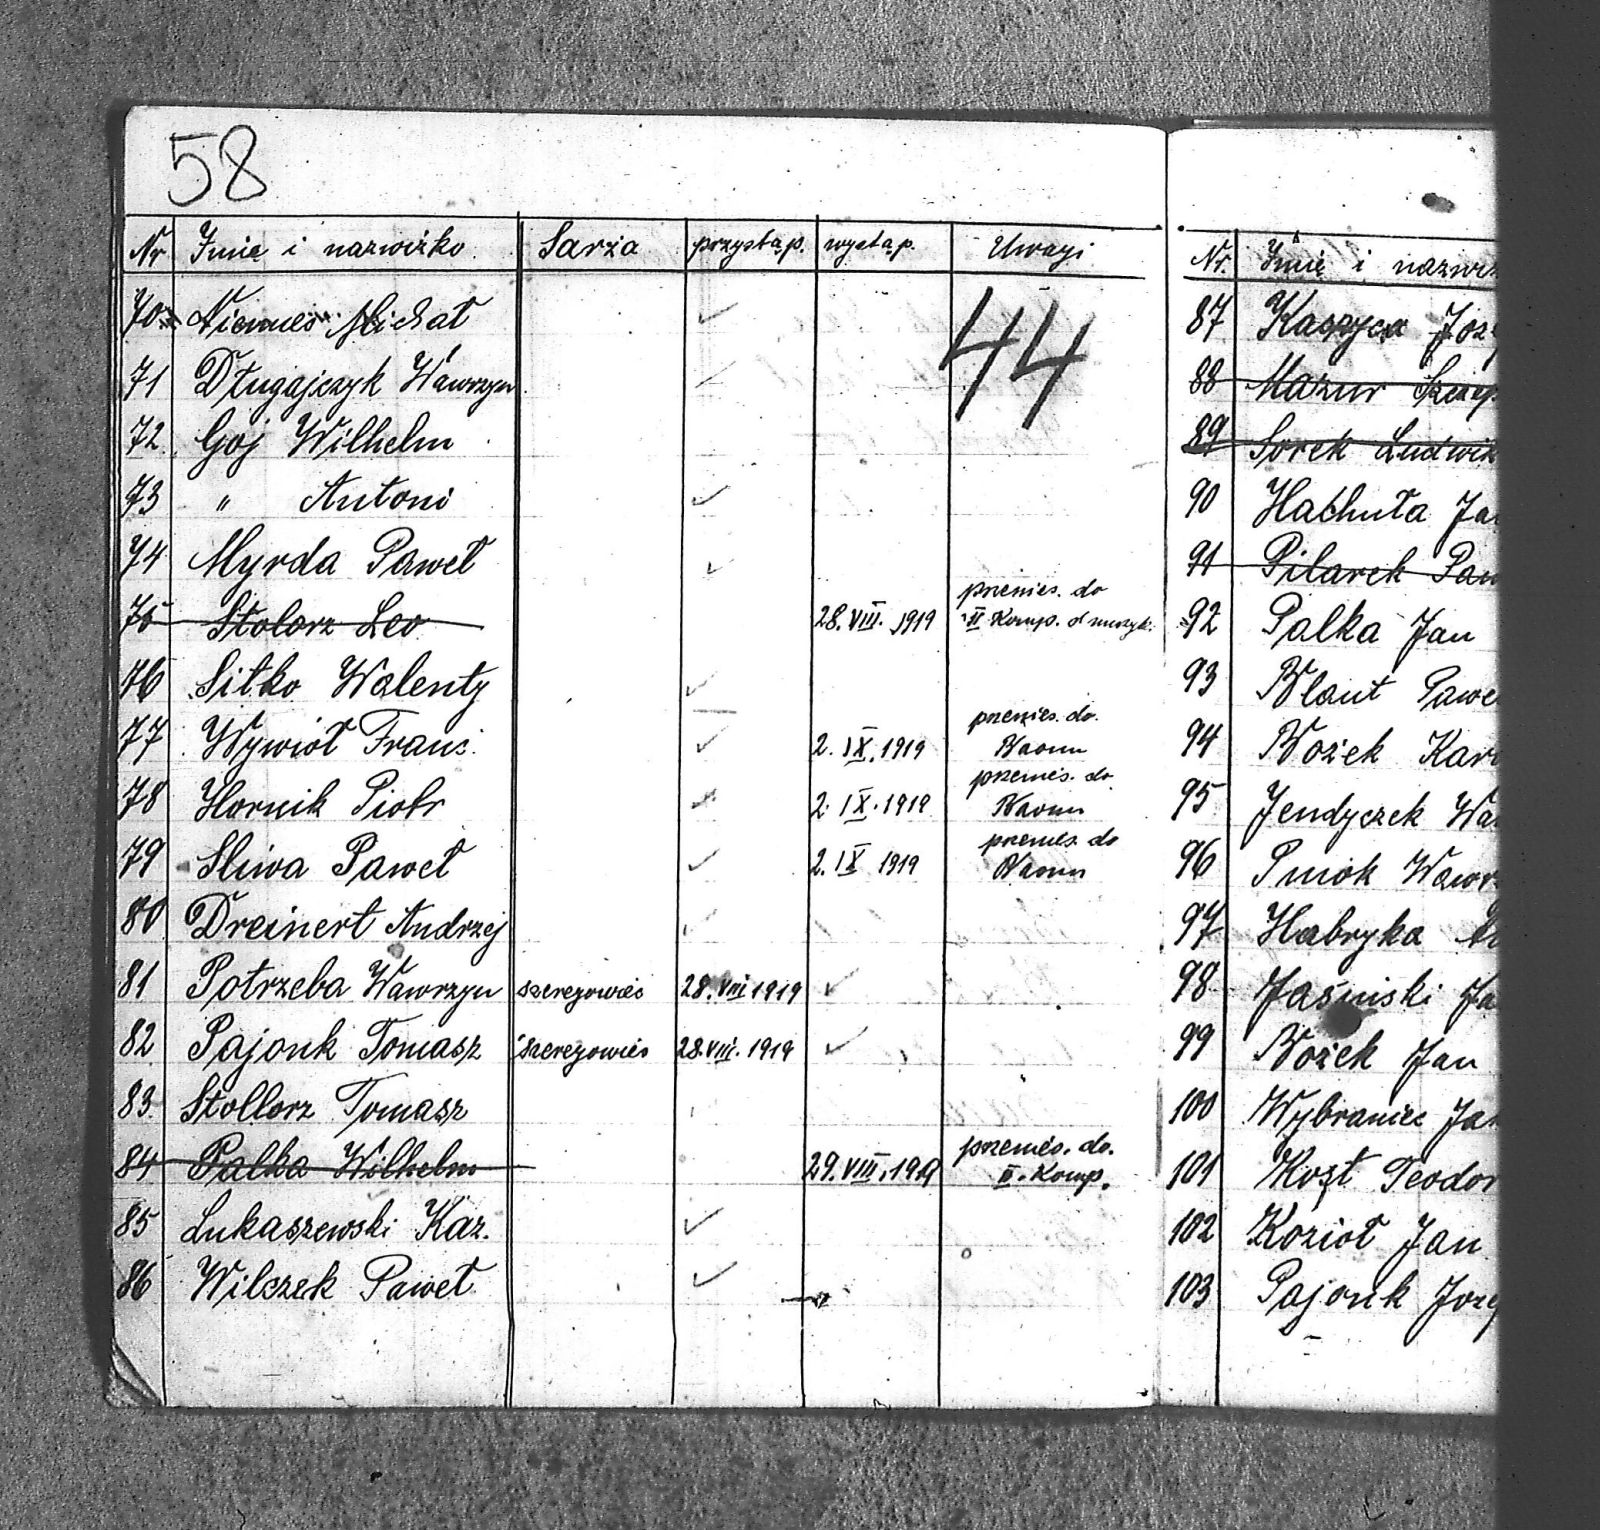 58
Nr Imię i nazwisko Sarża przystąp. wystąp. Uwagi
44
70 Michał
71 Długajczyk Wawrzyn
72. Goj Wilhelm
73 " Antoni
74 Myrda Paweł
75 Stolorz Leo 28. VIII. 1919 przenies. do II Komp.
76 Sitko Walenty
77 Wywioł Franc. 2. IX. 1919 przenies. do
78 Hornik Piotr 2. IX. 1919 przenies. do
79 Sliwa Paweł 2. IX 1919 przenies. do
80 Dreinert Andrzej
81 Potrzeba Wawrzyn szeregowiec 28. VIII 1919
82 Pajonk Tomasz szeregowiec 28. VIII. 1919
83. Stollorz Tomasz
84 Palka Wilhelm 29. VIII. 1919 przenies. do. II. Komp.
85 Lukaszewski Kaz.
86 Wilczek Paweł
Nr. Imię i nazwis
87 Kaszyca Józ
88 Mazur Szczep
89 Sorek Ludwik
90 Hachuła Jan
91 Pilarek Paw
92 Palka Jan
93 Blaut Pawe
94 Bożek Karo
95 Jendyczek Waw
96 Pniok Wawrz
97 Habryka
98 Jasiński Ja
99 Bożek Jan
100 Wybraniec Jan
101 Kost Teodor
102 Kozioł Jan
103 Pajonk Józef